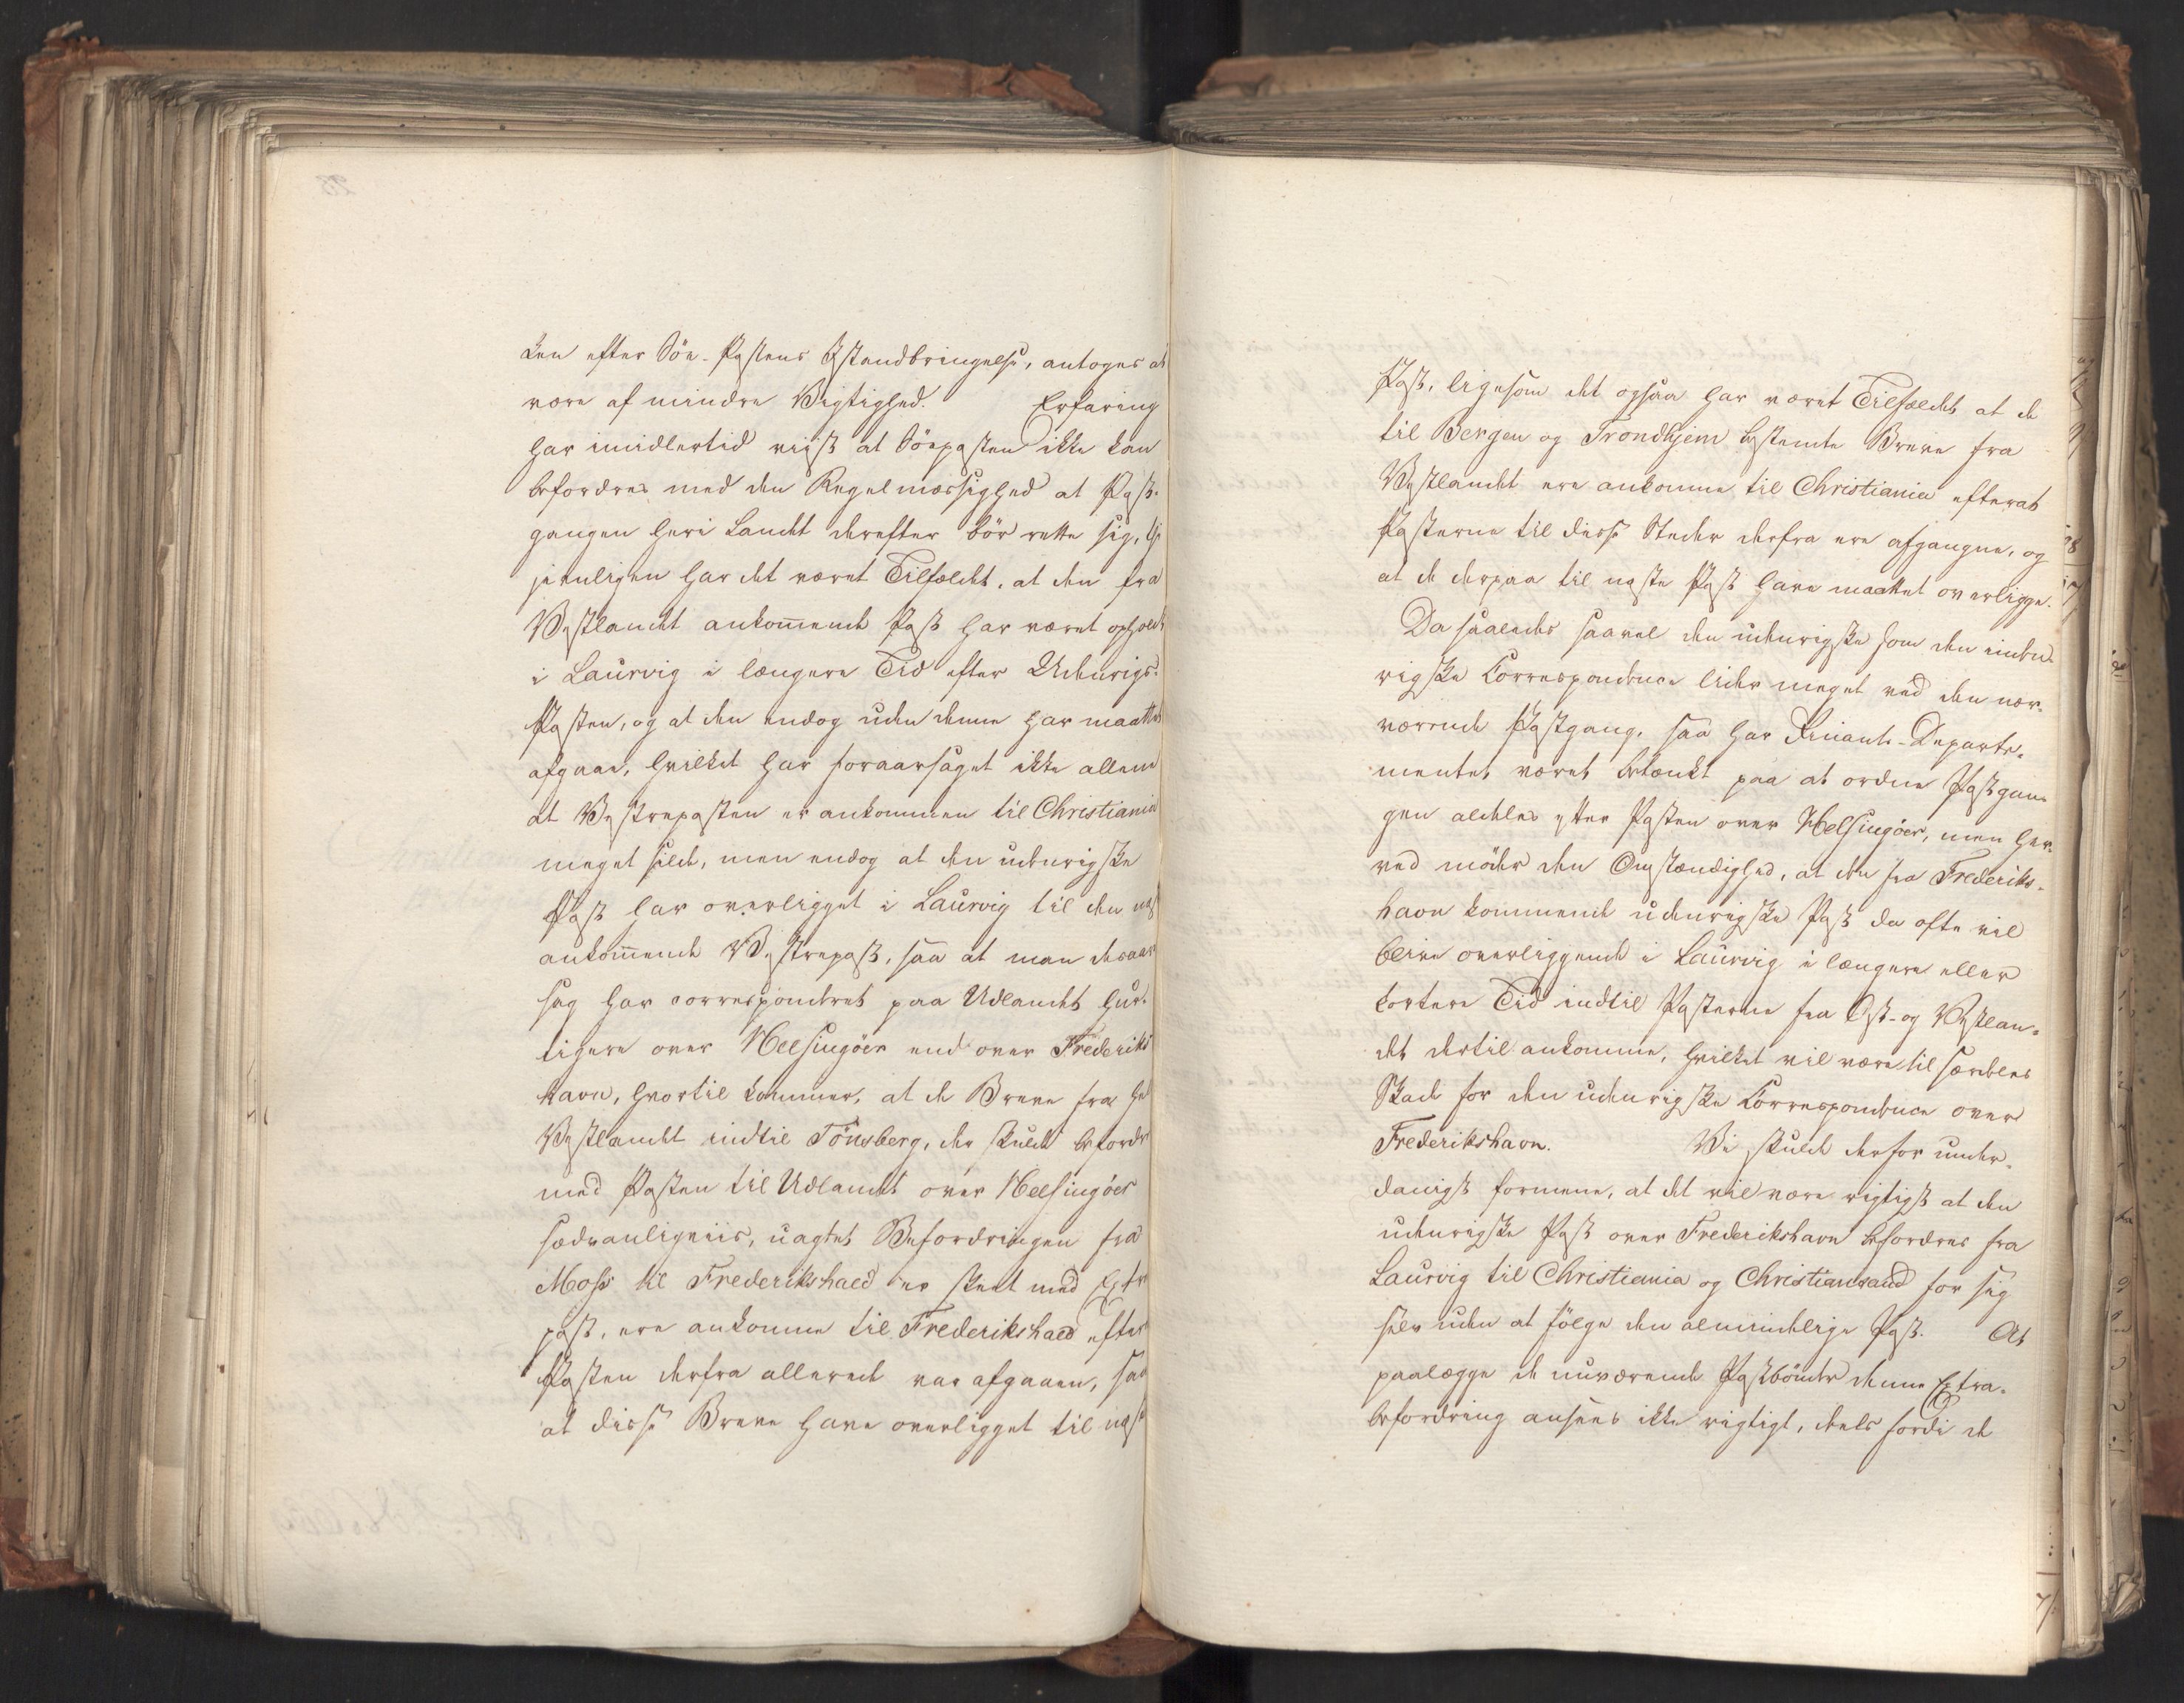 ken efter Söe-Postens Istandbringelse, antoges at
være af mindre Vigtighed. Erfaring
har imidlertid viist at Söeposten ikke kan
befordres med den Regelmæssighed at Post-
gangen her i Landet derefter bör rette sig, Ig-
jenligen har det været Tilfældet, at den fra
Vestlandet ankom̄ende Post har været opholdt
i Laurvig i længere Tid efter Udenrigs-
Posten, og at den endog uden denne har maattet
afgaae, hvilket har foraarsaget ikke allene
at Vestreposten er ankommen til Christiania
meget silde, men endog at den udenrigske
Post har overligget i Laurvig til den næst
ankom̄ende Vestrepost, saa at man desaar-
sag har correspondret paa Udlandet hur-
tigere over Helsingöer end over Frederiks-
havn, hvortil kommer, at de Breve fra hele
Vestlandet indtil Tönsberg, der skulde befordres
med Posten til Udlandet over Helsingöer
sædvanligviis, uagtet Befordringen fra
Moss til Frederikshald er skeet med Extra
post, ere ankomne til Frederikshald efter
Posten derfra allerede var afgaaen, saa
at disse Breve have overligget til næste
Post, ligesom det ogsaa har været Tilfældet at de
til Bergen og Trondhjem bestemte Breve fra
Vestlandet ere ankomne til Christiania efterat
Posterne til disse Steder derfra ere afgangne, og
at de derpaa til næste Post have maattet overligge.
Da saaledes saavel den udenrigske som den inden-
rigske Correspondence lider meget ved den nær-
værende Postgang, saa har Finants-Departe-
mentet været betænkt paa at ordne Postgan-
gen aldeles efter Posten over Helsingöer, men her-
ved möder den Omstændighed, at den fra Frederiks-
havn kommende udenrigske Post da ofte vil
blive overliggende i Laurvig i længere eller
kortere Tid indtil Posterne fra Öst- og Vestlan-
det dertil ankomme, hvilket vil være til særdeles
Skade for den udenrigske Correspondence over
Frederikshavn. Vi skulde derfor under-
danigst formene, at det vil være rigtigst at den
udenrigske Post over Frederikshavn befordres fra
Laurvig til Christiania og Christiansand for sig
selv uden at fölge den almindelige Post. At
paalægge de nuværende Postbönder denne Extra-
befordring ansees ikke rigtigt, deels fordi de